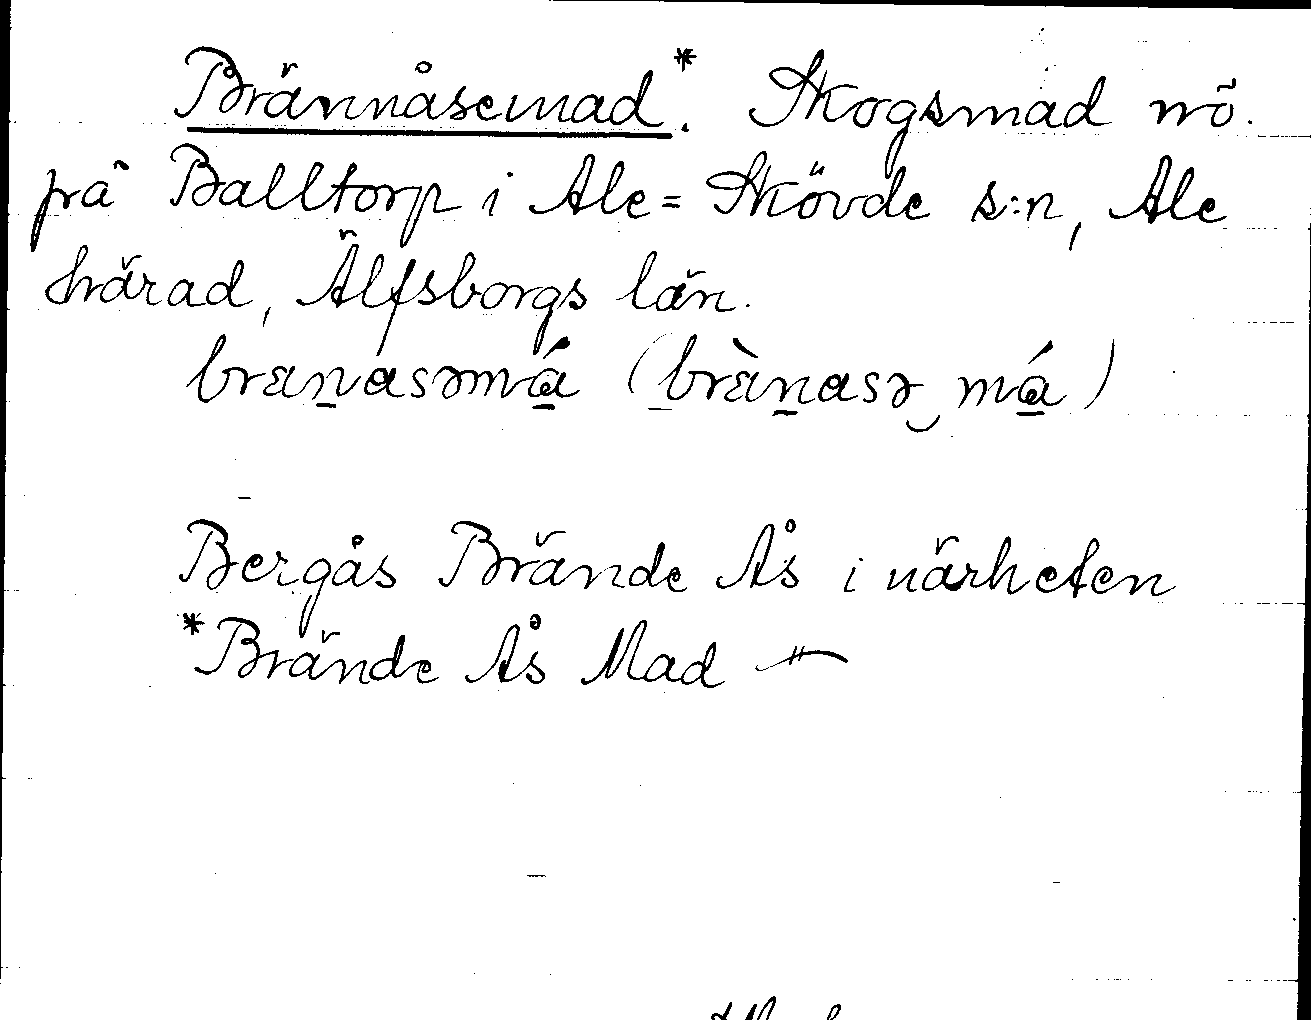 Brännåsemad.* Skogsmad nö.
på Balltorp i Ale=Skövde s:n, Ale
härad, Älfsborgs län.
branasəmá (brànasə má)
Bergås Brände Ås i närheten
*Brände Ås Mad